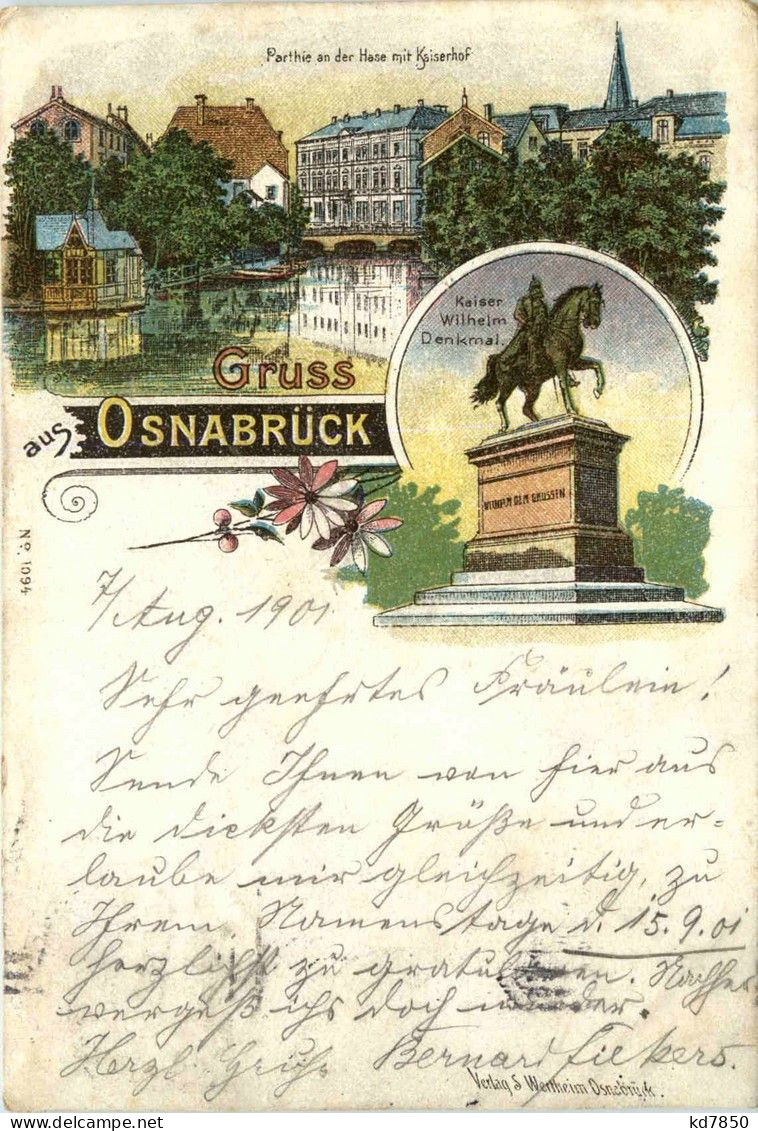 Parthie an der Hase mit Kaiserhof
Kaiser
Wilhelm
Denkmal.
Gruss
aus OSNABRÜCK
WILHELM DEM GROSSEN
No. 1094
7/Aug. 1901
Sehr geehrtes Fräulein!
Sende Ihnen von hier aus
die dicksten Grüße und er=
laube mir gleichzeitig, zu
Ihrem Namenstage d. 15.9.01
herzlichst zu gratulieren. Nachher
vergeß ichs doch wieder.
Herzl. Gruß Bernard
Verlag S. Wertheim Osnabrück.
kd7850